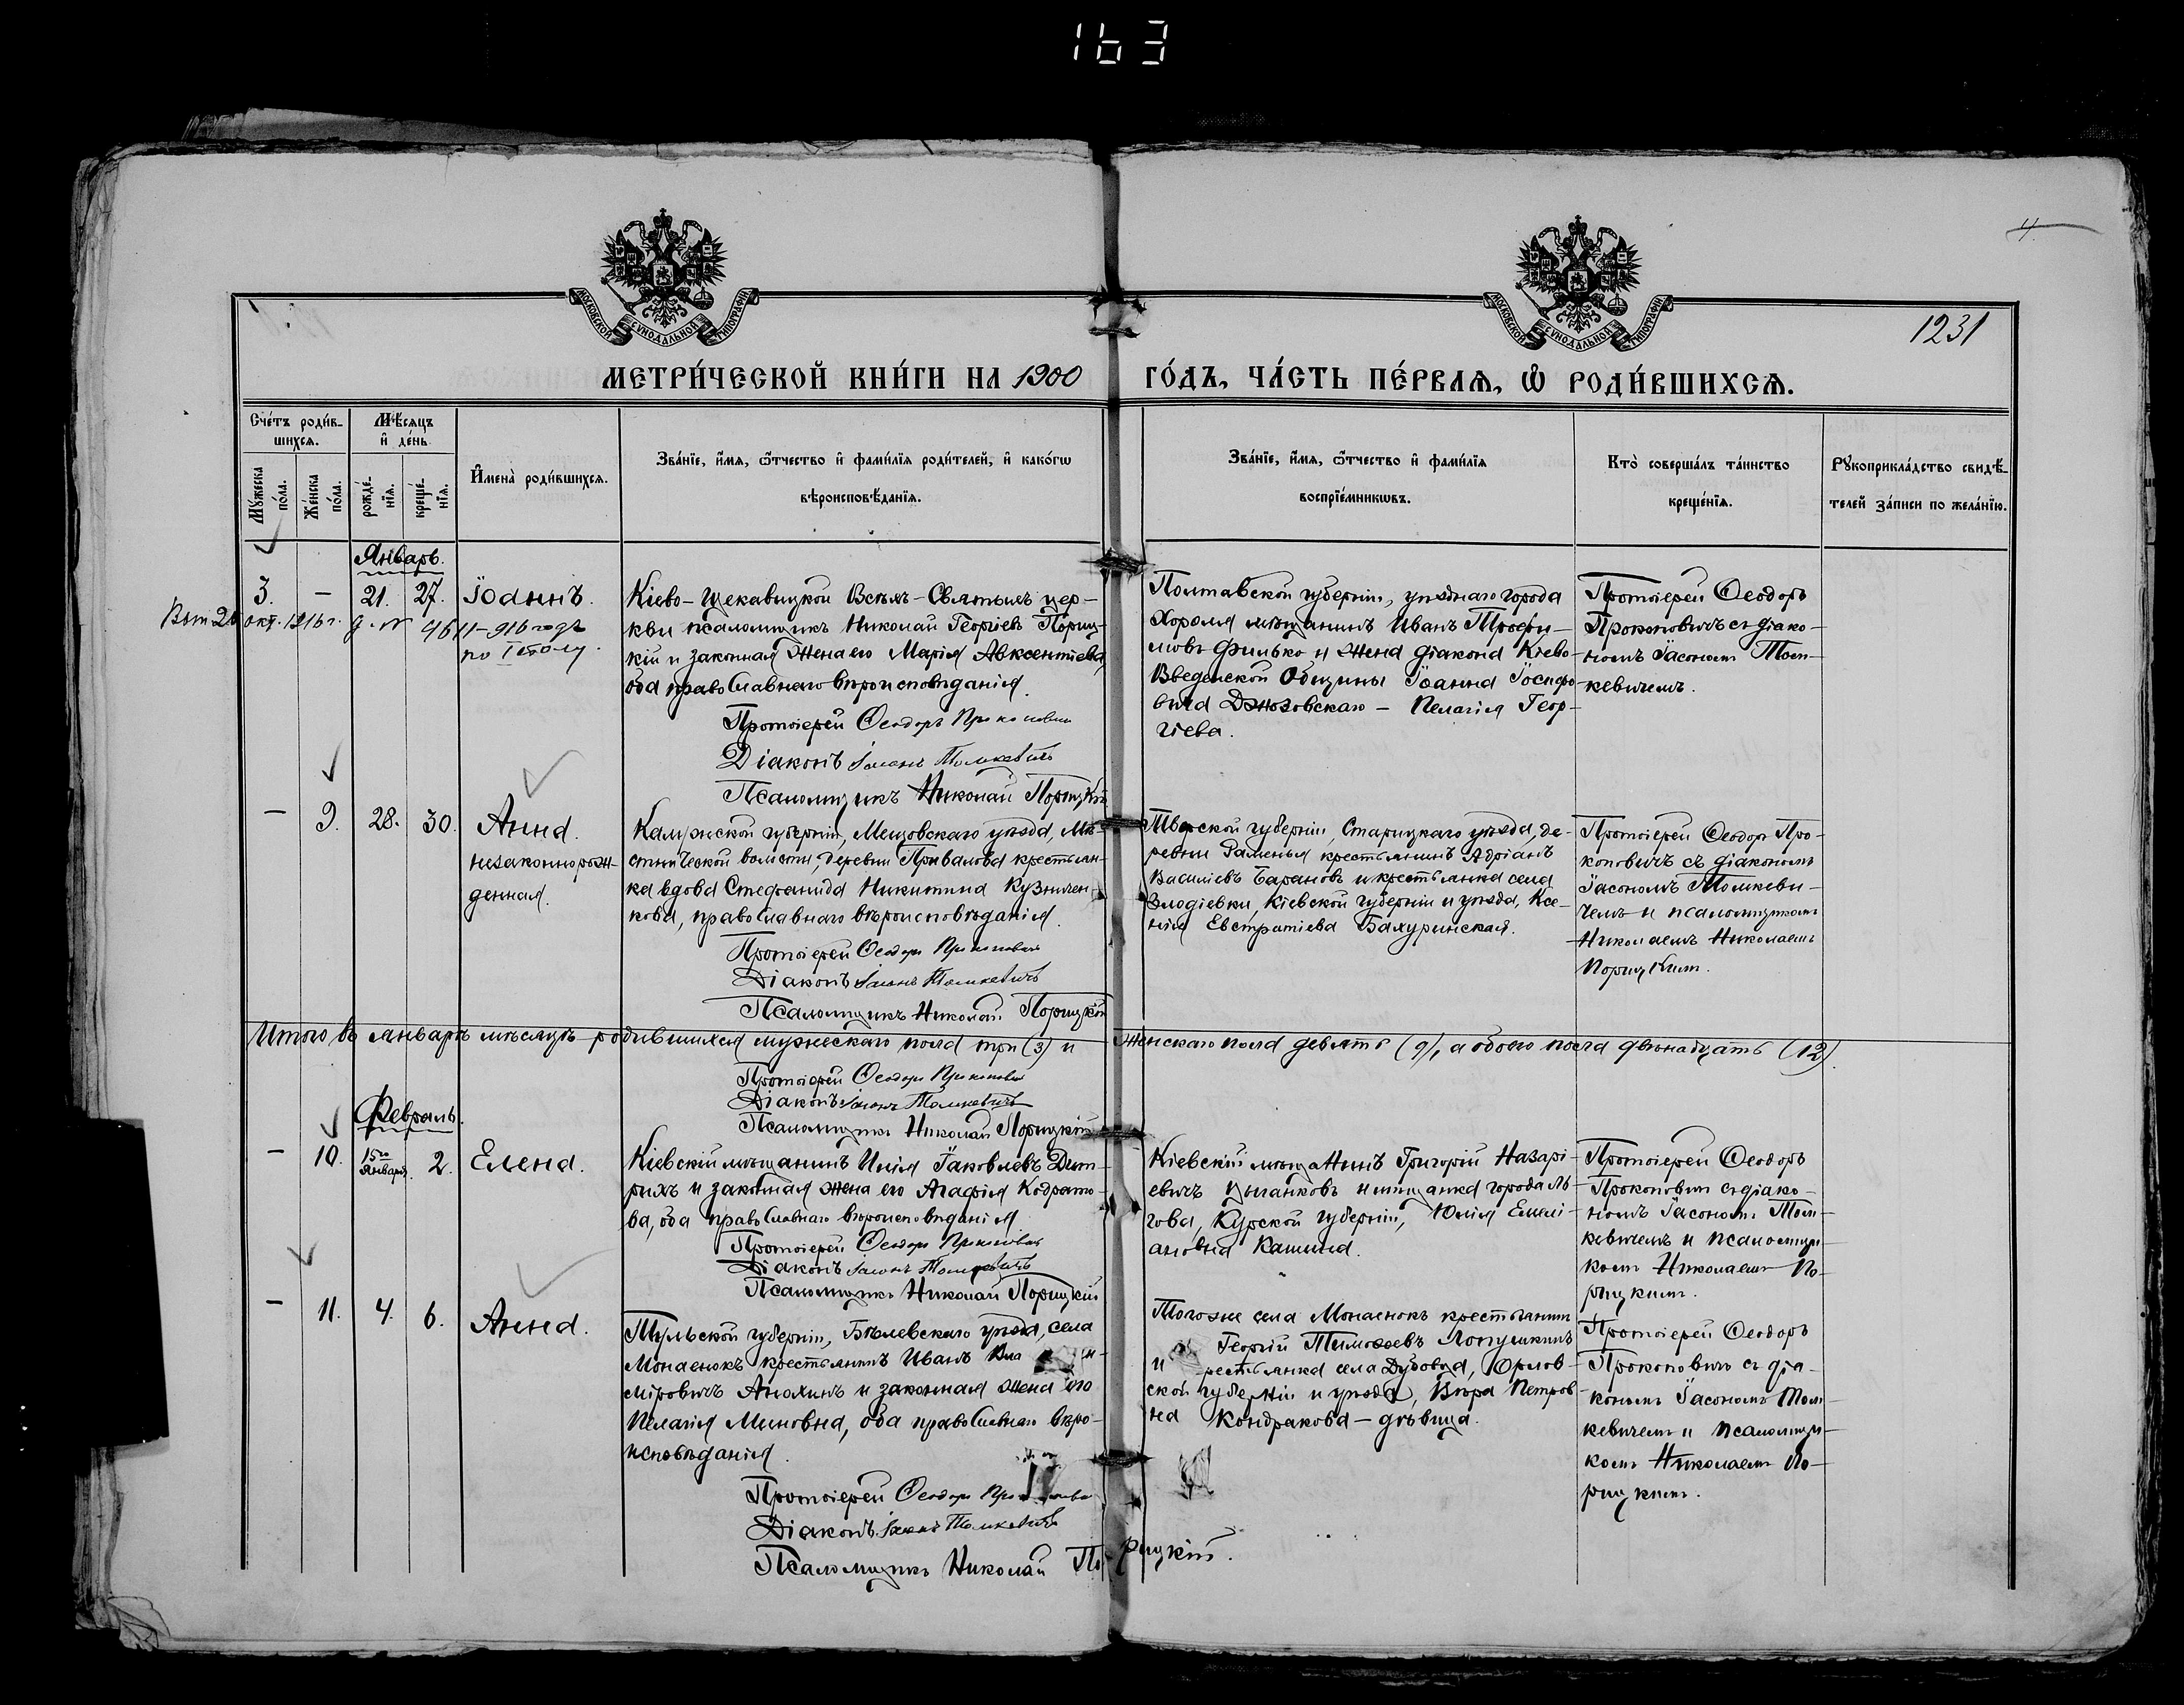 163
4
МОСКОВСКОЙ СѴНОДАЛЬНОЙ ТИПОГРАФІИ
МОСКОВСКОЙ СѴНОДАЛЬНОЙ ТИПОГРАФІИ
1231
МЕТРИ́ЧЕСКОЙ КНИ́ГИ НА 1900 ГО́ДЪ, ЧА́СТЬ ПЕ́РВАѦ, Ѡ҆ РОДИ́ВШИХСѦ.
Сче́тъ роди́в-
шихсѧ.
Мѣ́сѧцъ
и҆ де́нь
Мꙋ́жеска
по́ла.
Же́нска
по́ла.
рожде́-
нїѧ.
креще́-
нїѧ.
И҆мена̀ роди́вшихсѧ.
Зва́нїе, и҆́мѧ, ѻ҆́тчество и҆ фами́лїѧ роди́телей, и҆ како́гѡ
вѣроисповѣ́данїѧ.
Зва́нїе, и҆́мѧ, ѻ҆́тчество и҆ фами́лїѧ
воспрїе́мникѡвъ.
Кто̀ соверша́лъ та́инство
креще́нїѧ.
Рꙋкоприкла́дство свидѣ́-
телей за́писи по жела́нїю.
Январь.
3. — 21. 27. Іоаннъ.
окт. 1916 г.
по
Кіево-Щекавицкой Всѣхъ-Святыхъ цер-
кви псаломщикъ Николай Георгіевъ Пориц-
кій и законная жена его Марія Авксентіева,
оба православнаго вѣроисповѣданія.
Протоіерей Ѳеодоръ Прокоповичъ
Діаконъ Іасонъ Томкевичъ
Псаломщикъ Николай Порицкій
Полтавской губерніи, уѣзднаго города
Хорола мѣщанинъ Иванъ Трофи-
мовъ Филько и жена діакона Кіево-
Введенской Общины Іоанна Іосифо-
вича Дзюзовскаго — Пелагія Геор-
гіева.
Протоіерей Ѳеодоръ
Прокоповичъ съ діако-
номъ Іасономъ Том-
кевичемъ.
— 9. 28. 30. Анна.
незаконнорож-
денная.
Калужской губерніи, Мещовскаго уѣзда,
волости, деревни Привалова крестьян-
ка вдова Стефанида Никитина Кузнечен-
кова, православнаго вѣроисповѣданія.
Протоіерей Ѳеодоръ Прокоповичъ
Діаконъ Іасонъ Томкевичъ
Псаломщикъ Николай Порицкій
Тверской губерніи, Старицкаго уѣзда, де-
ревни Раменья крестьянинъ Адріанъ
Василіевъ Барановъ и крестьянка села
Злодіевки, Кіевской губерніи и уѣзда, Ксе-
нія Евстратіева Бахуринская.
Протоіерей Ѳеодоръ Про-
коповичъ съ діакономъ
Іасономъ Томкеви-
чемъ и псаломщикомъ
Николаемъ Николаемъ
Порицкимъ.
Итого въ январѣ мѣсяцѣ родившихся мужескаго пола три (3) и женскаго пола девять (9), а обоего пола двѣнадцать (12).
Протоіерей Ѳеодоръ Прокоповичъ
Діаконъ Іасонъ Томкевичъ
Псаломщикъ Николай Порицкій
Февраль.
— 10. 15го Января. 2. Елена.
Кіевскій мѣщанинъ Илія Іаковлевъ Дит-
рихъ и законная жена его Агафія Кодрато-
ва, оба православнаго вѣроисповѣданія.
Протоіерей Ѳеодоръ Прокоповичъ
Діаконъ Іасонъ Томкевичъ
Псаломщикъ Николай Порицкій
Кіевскій мѣщанинъ Григорій Назарі-
евичъ Цыганковъ и мѣщанка города Ль-
гова, Курской губерніи, Юлія Емелі-
ановна Кашина.
Протоіерей Ѳеодоръ
Прокоповичъ съ діако-
номъ Іасономъ Том-
кевичемъ и псаломщи-
комъ Николаемъ По-
рицкимъ.
— 11. 4. 6. Анна.
Тульской губерніи, Бѣлевскаго уѣзда, села
Монаенокъ крестьянинъ Иванъ Вла
міровичъ Анохинъ и законная жена его
Пелагія Миновна, оба православнаго вѣро-
исповѣданія.
Протоіерей Ѳеодоръ
Діаконъ Іасонъ Томкевичъ
Псаломщикъ Николай Порицкій.
Того же села Монаенокъ крестьянинъ
Георгій Тимоѳеевъ Лопушкинъ
и крестьянка села Дубовца, Орлов-
ской губерніи и уѣзда, Вѣра Петров-
на Кондракова — дѣвица.
Протоіерей Ѳеодоръ
Прокоповичъ съ діа-
кономъ Іасономъ Том-
кевичемъ и псаломщи-
комъ Николаемъ По-
рицкимъ.